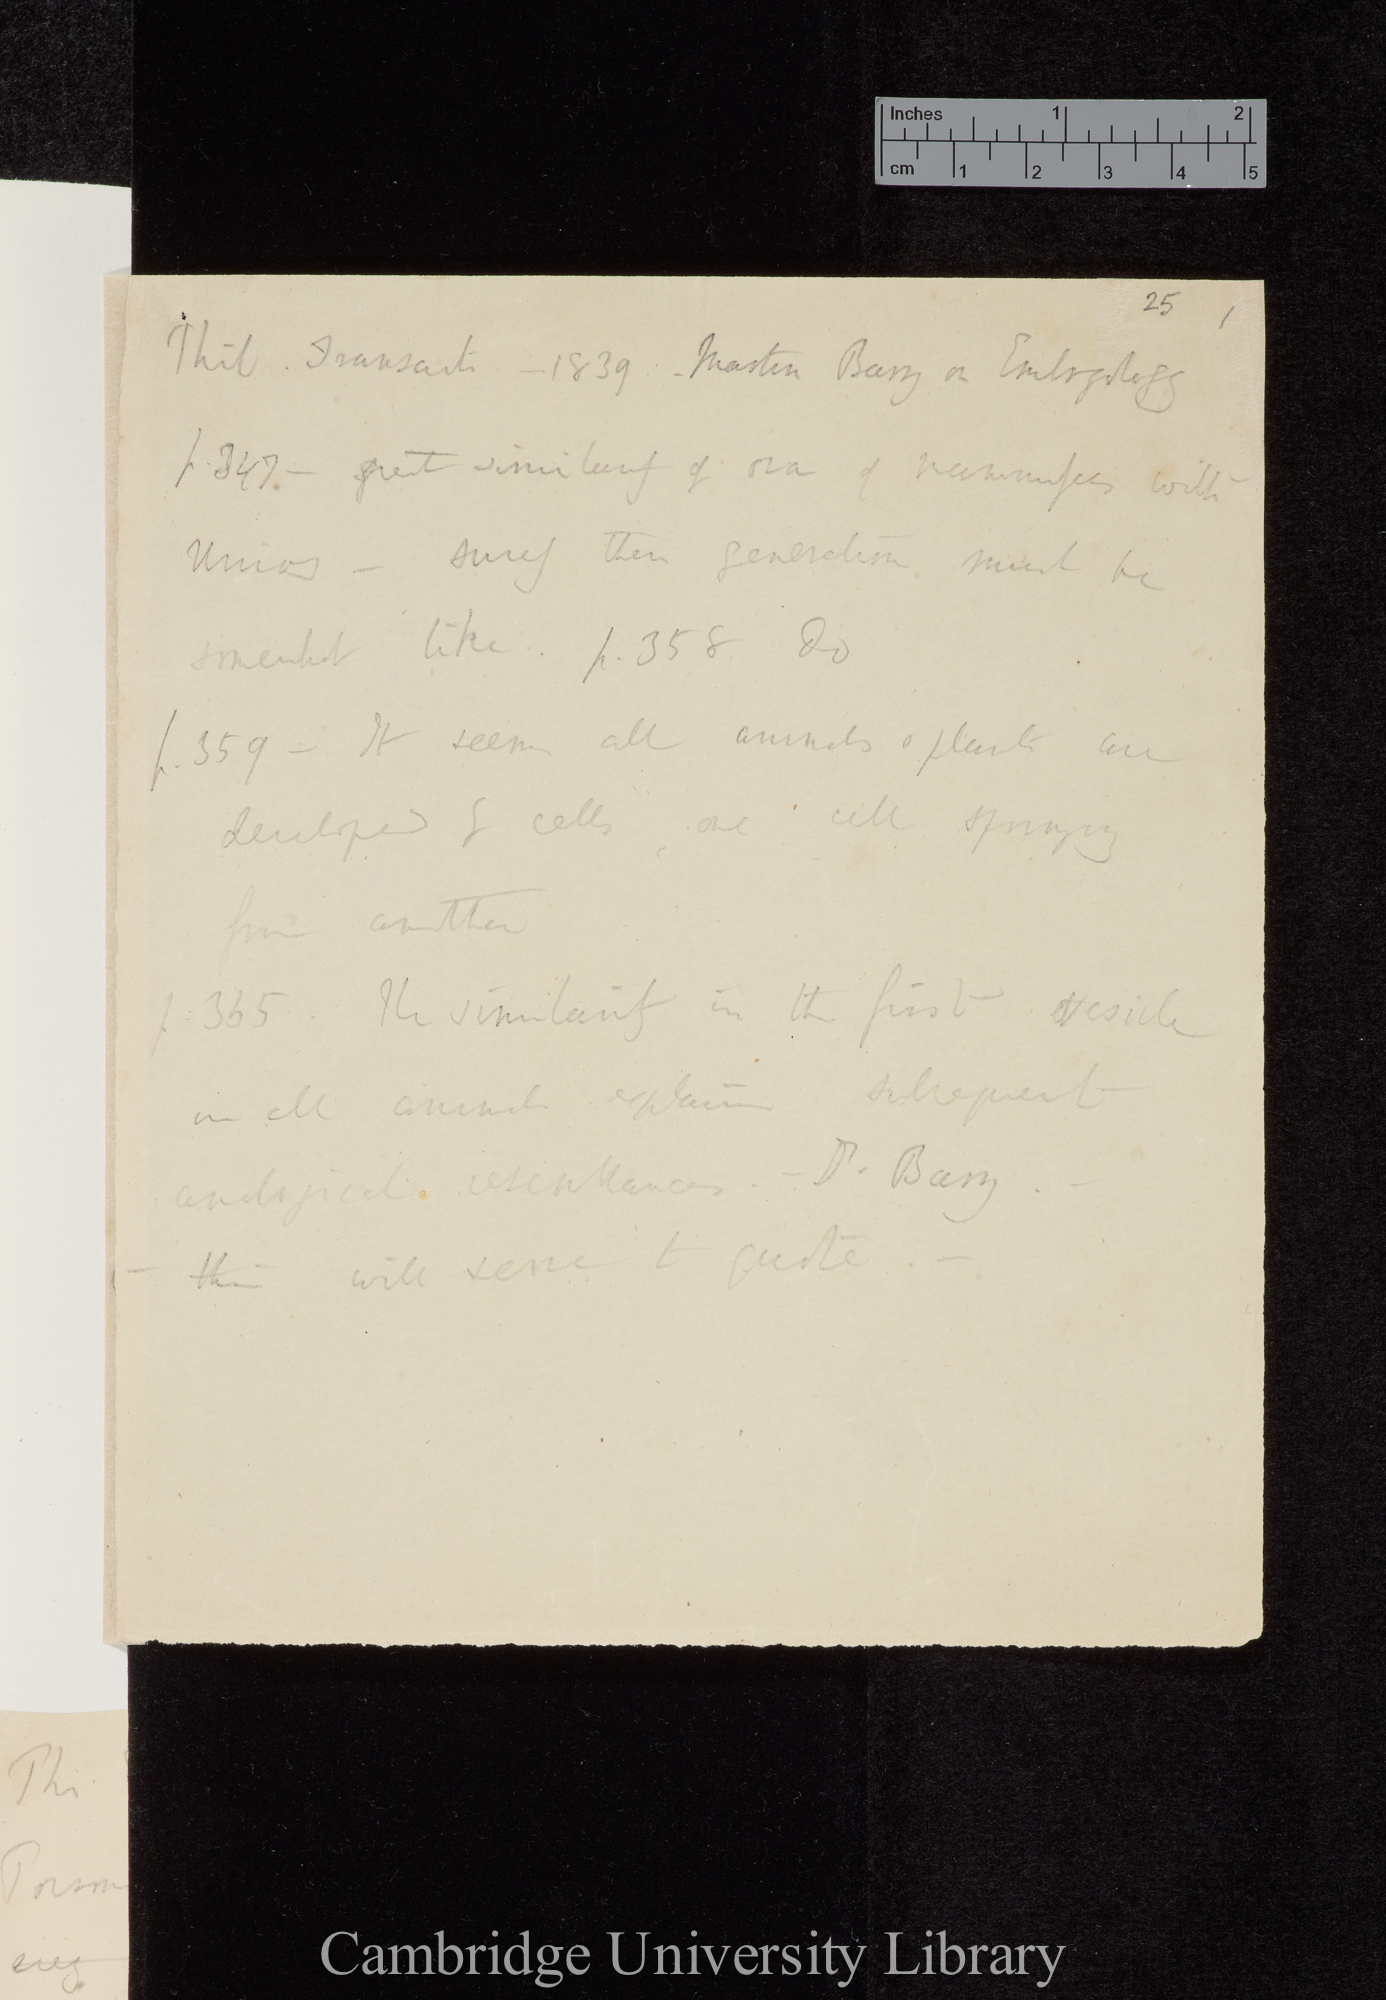 Inches 1 2
cm 1 2 3 4 5
25 1
Phil. Transacts – 1839 – Martin Barry on Embryology
p. 347 – great similarity of ova of mammifers with
Unios – surely then generation must be
somewhat like. p. 358 Do
p. 359 – It seems all animals & plants are
developed of cells, one cell springing
from another
p. 365. The similarity in the first vesicle
in all animals explains subsequent
analogical resemblances. – Dr. Barry. –
– this will serve to quote. –
Thi
Porson
Cambridge University Library